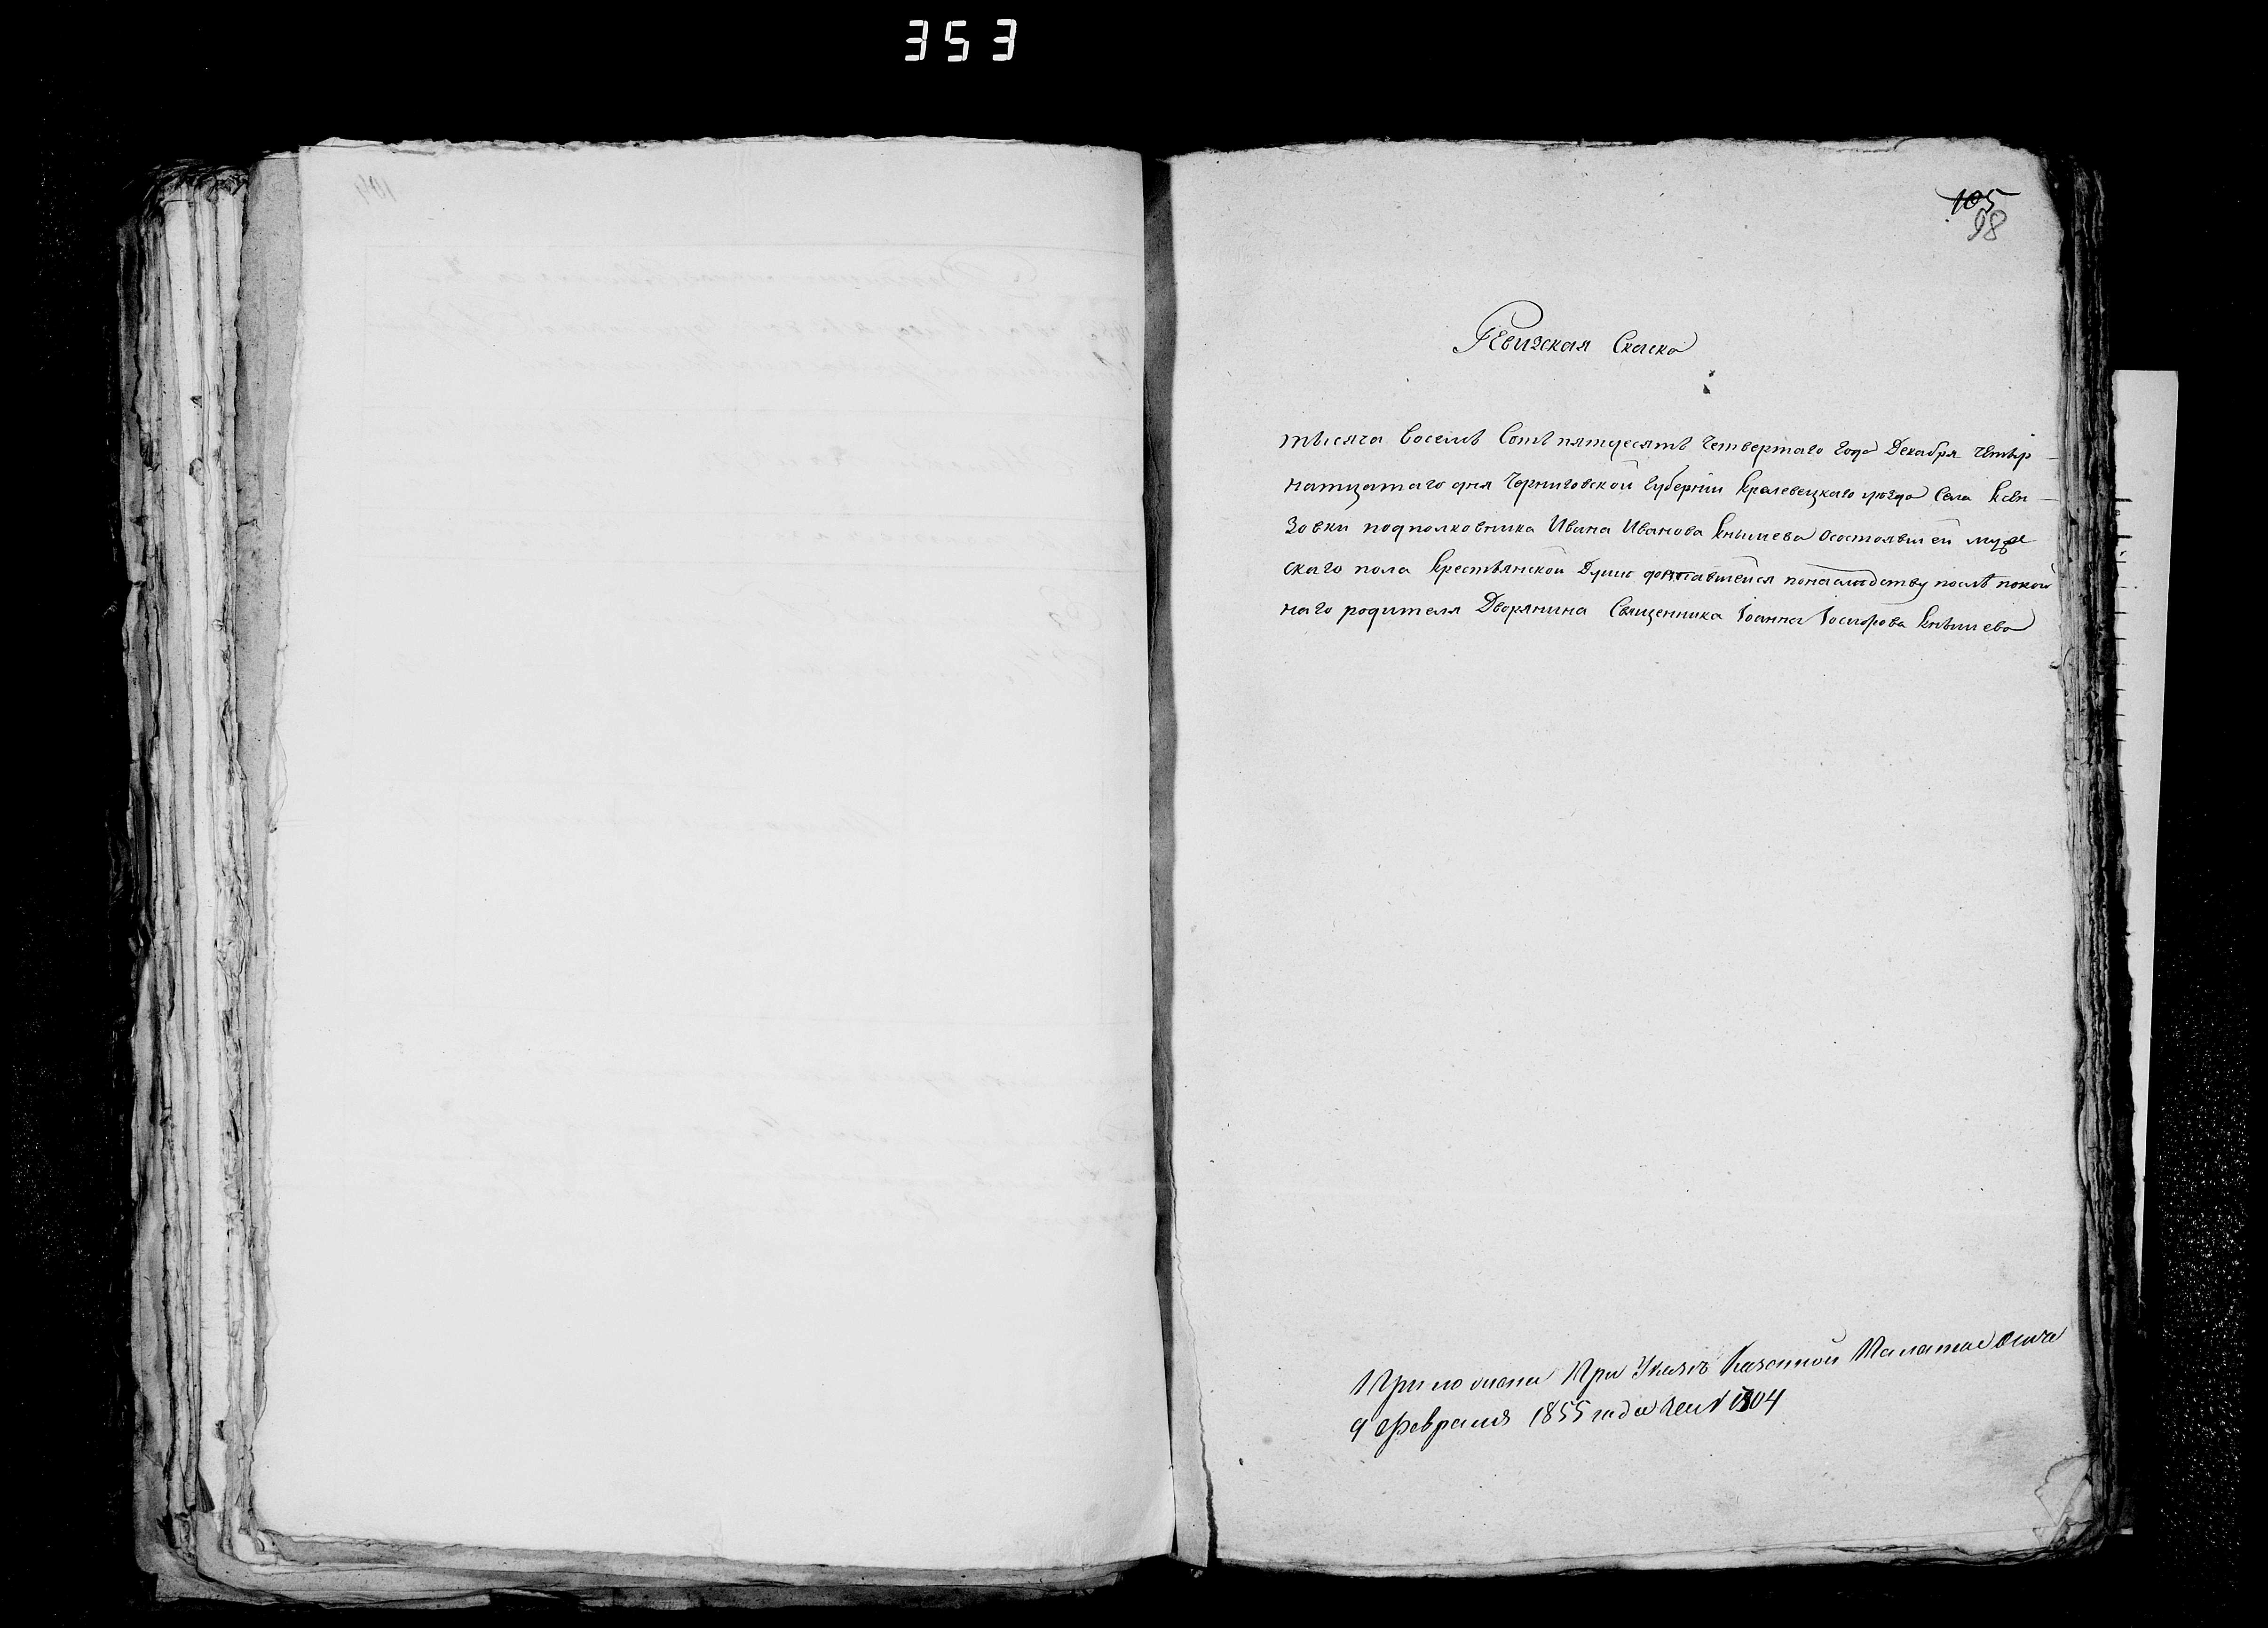 353
105
98
Ревизская Скаска
тысяча восемь сотъ пятдесятъ четвертаго года Декабря четыр-
натцатаго дня Черниговской Губерніи Кролевецкаго уезда Села
зовки подполковника Ивана Иванова Кнышева осостоявшей муже
скаго пола крестьянской Душе доставшейся понаследству послѣ покой
наго родителя Дворянина Священника Іоанна Кнышева
При Указѣ Казенной Палаты
9 Февраля 1855 года